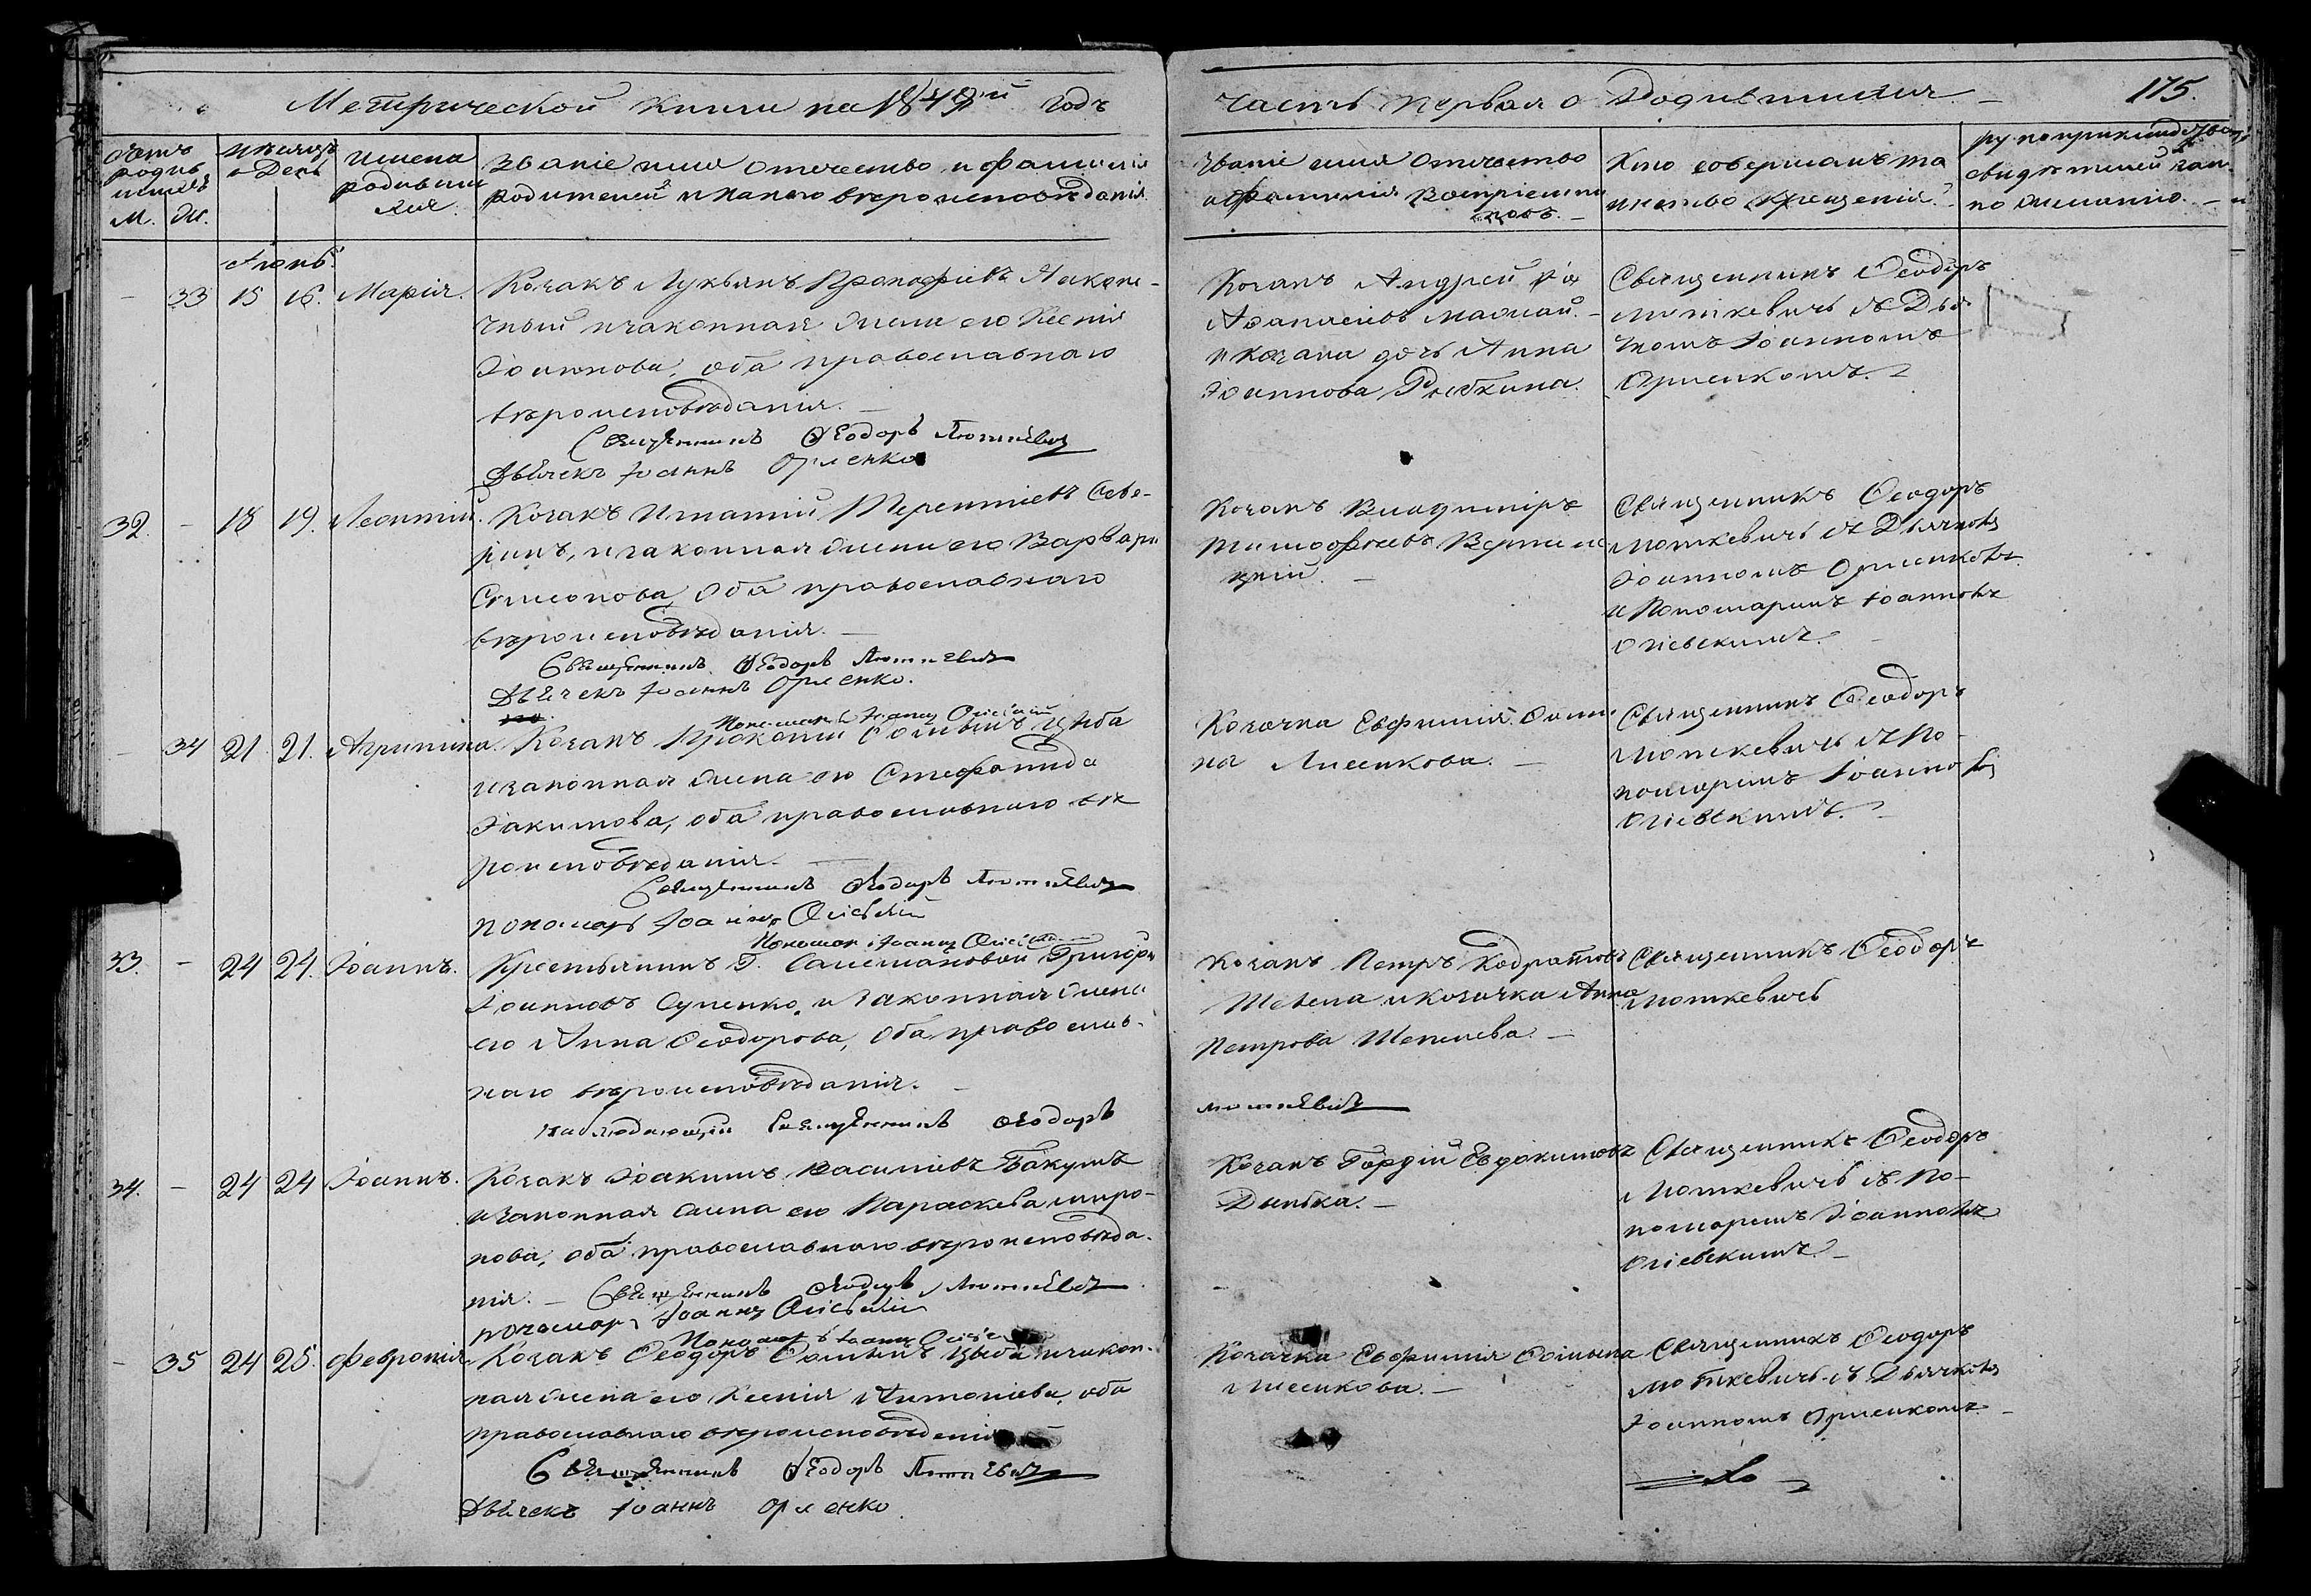 Метрической книги на 1849й годъ
Часть первая о родившихся
175.
Счетъ родившихся
М. Ж.
Мѣсяцъ и День
Имена родившихся
Званіе имя отчество и фамилія
родителей и какого вѣроисповѣданія.
Званіе имя отчество
и фамилія воспріемниковъ.
Кто совершалъ таинство крещенія.
по желанію.
Іюнь.
33 15 16. Марія.
Козакъ Лукьянъ Прокофьевъ
и законная жена его Ксенія
Іоаннова, оба православнаго
вѣроисповѣданія.
Священникъ Ѳеодоръ Лоткевичъ
Дьячекъ Іоаннъ Орленко
Козакъ Андрей
и козака дочь Анна
Іоаннова Рыбкина.
Священникъ Ѳеодоръ
Лоткевичъ съ Дья-
чкомъ Іоанномъ
Орленкомъ.
32. - 18 19. Леонтій.
Козакъ Игнатій Терентіевъ Севе-
ринъ, и законная жена его Варвара
Симеонова, оба православнаго
вѣроисповѣданія. —
Священникъ Ѳеодоръ Лоткевичъ
Дьячекъ Іоаннъ Орленко.
Пономарь Іоаннъ Огіевскій
Козакъ Владиміръ
Тимофѣевъ
Священникъ Ѳеодоръ
Лоткевичъ съ Дьячкомъ
Іоанномъ Орленкомъ
и Пономаремъ Іоанномъ
Огіевскимъ.
- 34 21 21. Агрипина.
Козакъ Прокопій Цыба
и законная жена его Стефанида
Іакимова, оба православнаго вѣ
роисповѣданія. —
Священникъ Ѳеодоръ Лоткевичъ
пономарь Іоаннъ Огіевскій
Пономарь Іоаннъ Огіевскій
Козачка Евфимія
Лисенкова. —
Священникъ Ѳеодоръ
Лоткевичъ съ По-
номаремъ Іоанномъ
Огіевскимъ.
33. - 24 24. Іоаннъ.
Крестьянинъ Г. Григорій
Іоанновъ Супенко, и законная жена
его Анна Ѳеодорова, оба православ-
наго вѣроисповѣданія. —
Священникъ Ѳеодоръ
Лоткевичъ
Козакъ Петръ
и козачка Анна
Петрова
Священникъ Ѳеодоръ
Лоткевичъ
34. - 24 24 Іоаннъ.
Козакъ Іоакимъ Василіевъ Бакумъ
и законная жена его Параскева Миро-
нова, оба православнаго вѣроисповѣда-
нія. — Священникъ Ѳеодоръ Лоткевичъ
пономарь Іоаннъ Огіевскій
Пономарь Іоаннъ
Козакъ Гордій Евдокимовъ
Священникъ Ѳеодоръ
Лоткевичъ съ По-
номаремъ Іоанномъ
Огіевскимъ. —
- 35 24 25. Февронія
Козакъ Ѳеодоръ Цыба и закон-
ная жена его Ксенія Антоніева, оба
православнаго вѣроисповѣданія
Священникъ Ѳеодоръ Лоткевичъ
Дьячекъ Іоаннъ Орленко
Козачка Евфимія
Лисенкова. —
Священникъ Ѳеодоръ
Лоткевичъ съ Дьячкомъ
Іоанномъ Орленкомъ